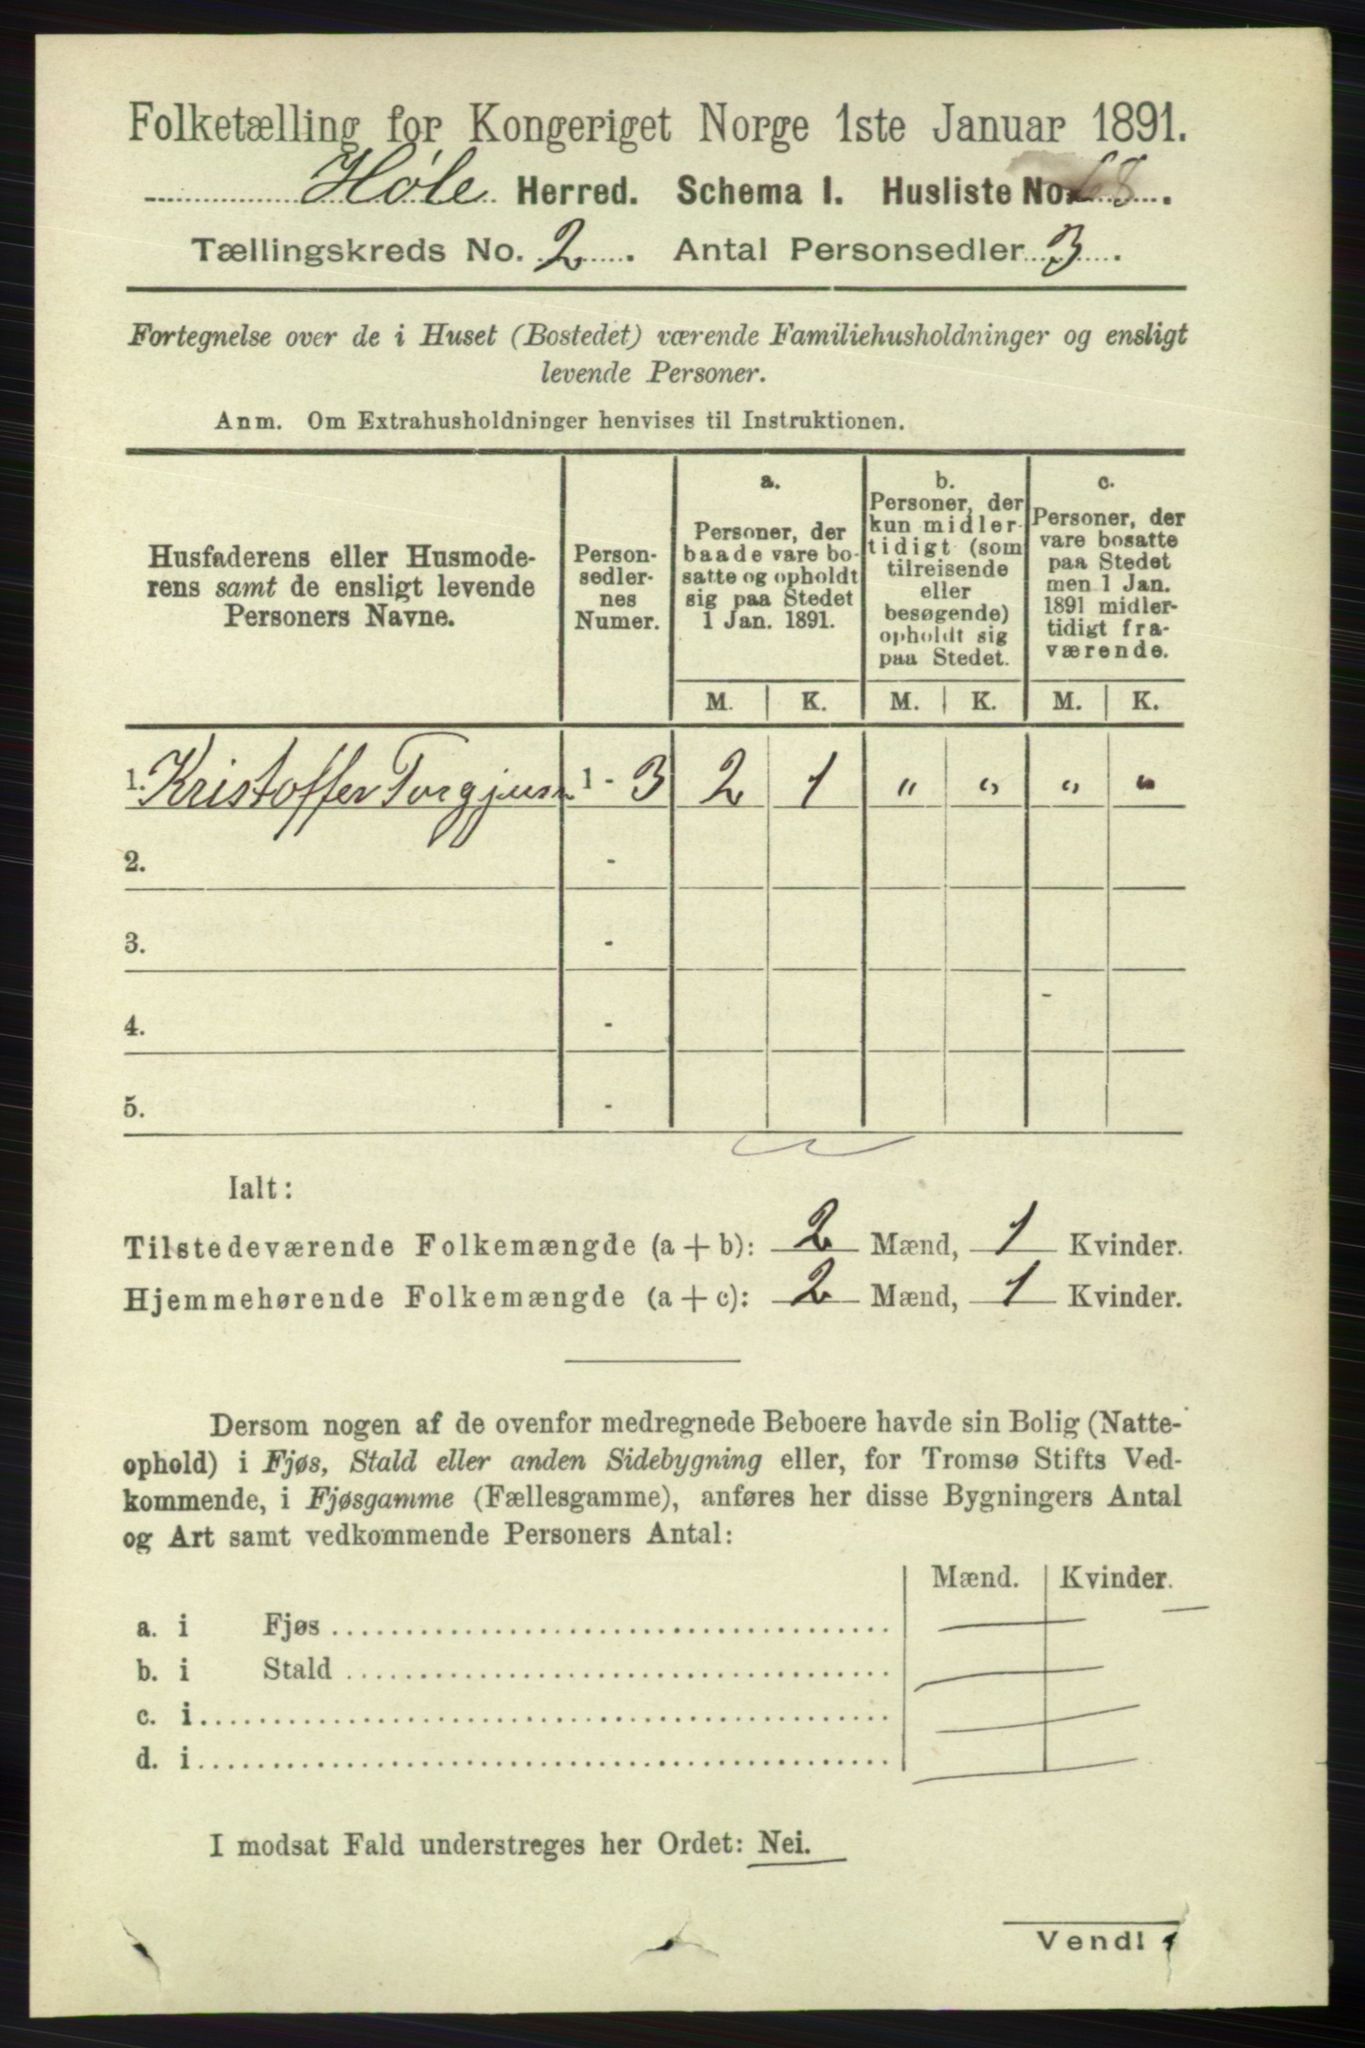 Folketælling for Kongeriget Norge 1ste Januar 1891.
Høle Herred. Schema I. Husliste No. 68.
Tællingskreds No. 2. Antal Personsedler 3.
Fortegnelse over de i Huset (Bostedet) værende Familiehusholdninger og ensligt
levende Personer.
Anm. Om Extrahusholdninger henvises til Instruktionen.
Husfaderens eller Husmode-
rens samt de ensligt levende
Personers Navne.
Person-
sedler-
nes
Numer.
a.
Personer, der
baade vare bo-
satte og opholdt
sig paa Stedet
1 Jan. 1891.
b.
Personer, der
kun midler-
tidigt (som
tilreisende
eller
besøgende)
opholdt sig
paa Stedet.
c.
Personer, der
vare bosatte
paa Stedet
men 1 Jan.
1891 midler-
tidigt fra-
værende.
M. K. M. K. M. K.
1. Kristoffer Torgjusn 1 - 3 2 1 " " " "
2. -
3. -
4. -
5. -
Ialt:
Tilstedeværende Folkemængde (a + b): 2 Mænd, 1 Kvinder.
Hjemmehørende Folkemængde (a + c): 2 Mænd, 1 Kvinder.
Dersom nogen af de ovenfor medregnede Beboere havde sin Bolig (Natte-
ophold) i Fjøs, Stald eller anden Sidebygning eller, for Tromsø Stifts Ved-
kommende, i Fjøsgamme (Fællesgamme), anføres her disse Bygningers Antal
og Art samt vedkommende Personers Antal:
Mænd. Kvinder.
a. i Fjøs
b. i Stald
c. i
d. i
I modsat Fald understreges her Ordet: Nei.
Vend!